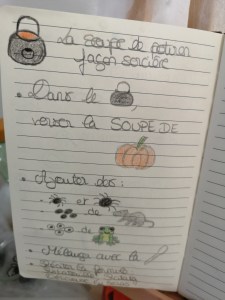 La soupe de potiron
façon sorcière
• Dans le
verser la SOUPE DE
• Ajouter des :
et
de
de
• Mélanger avec la